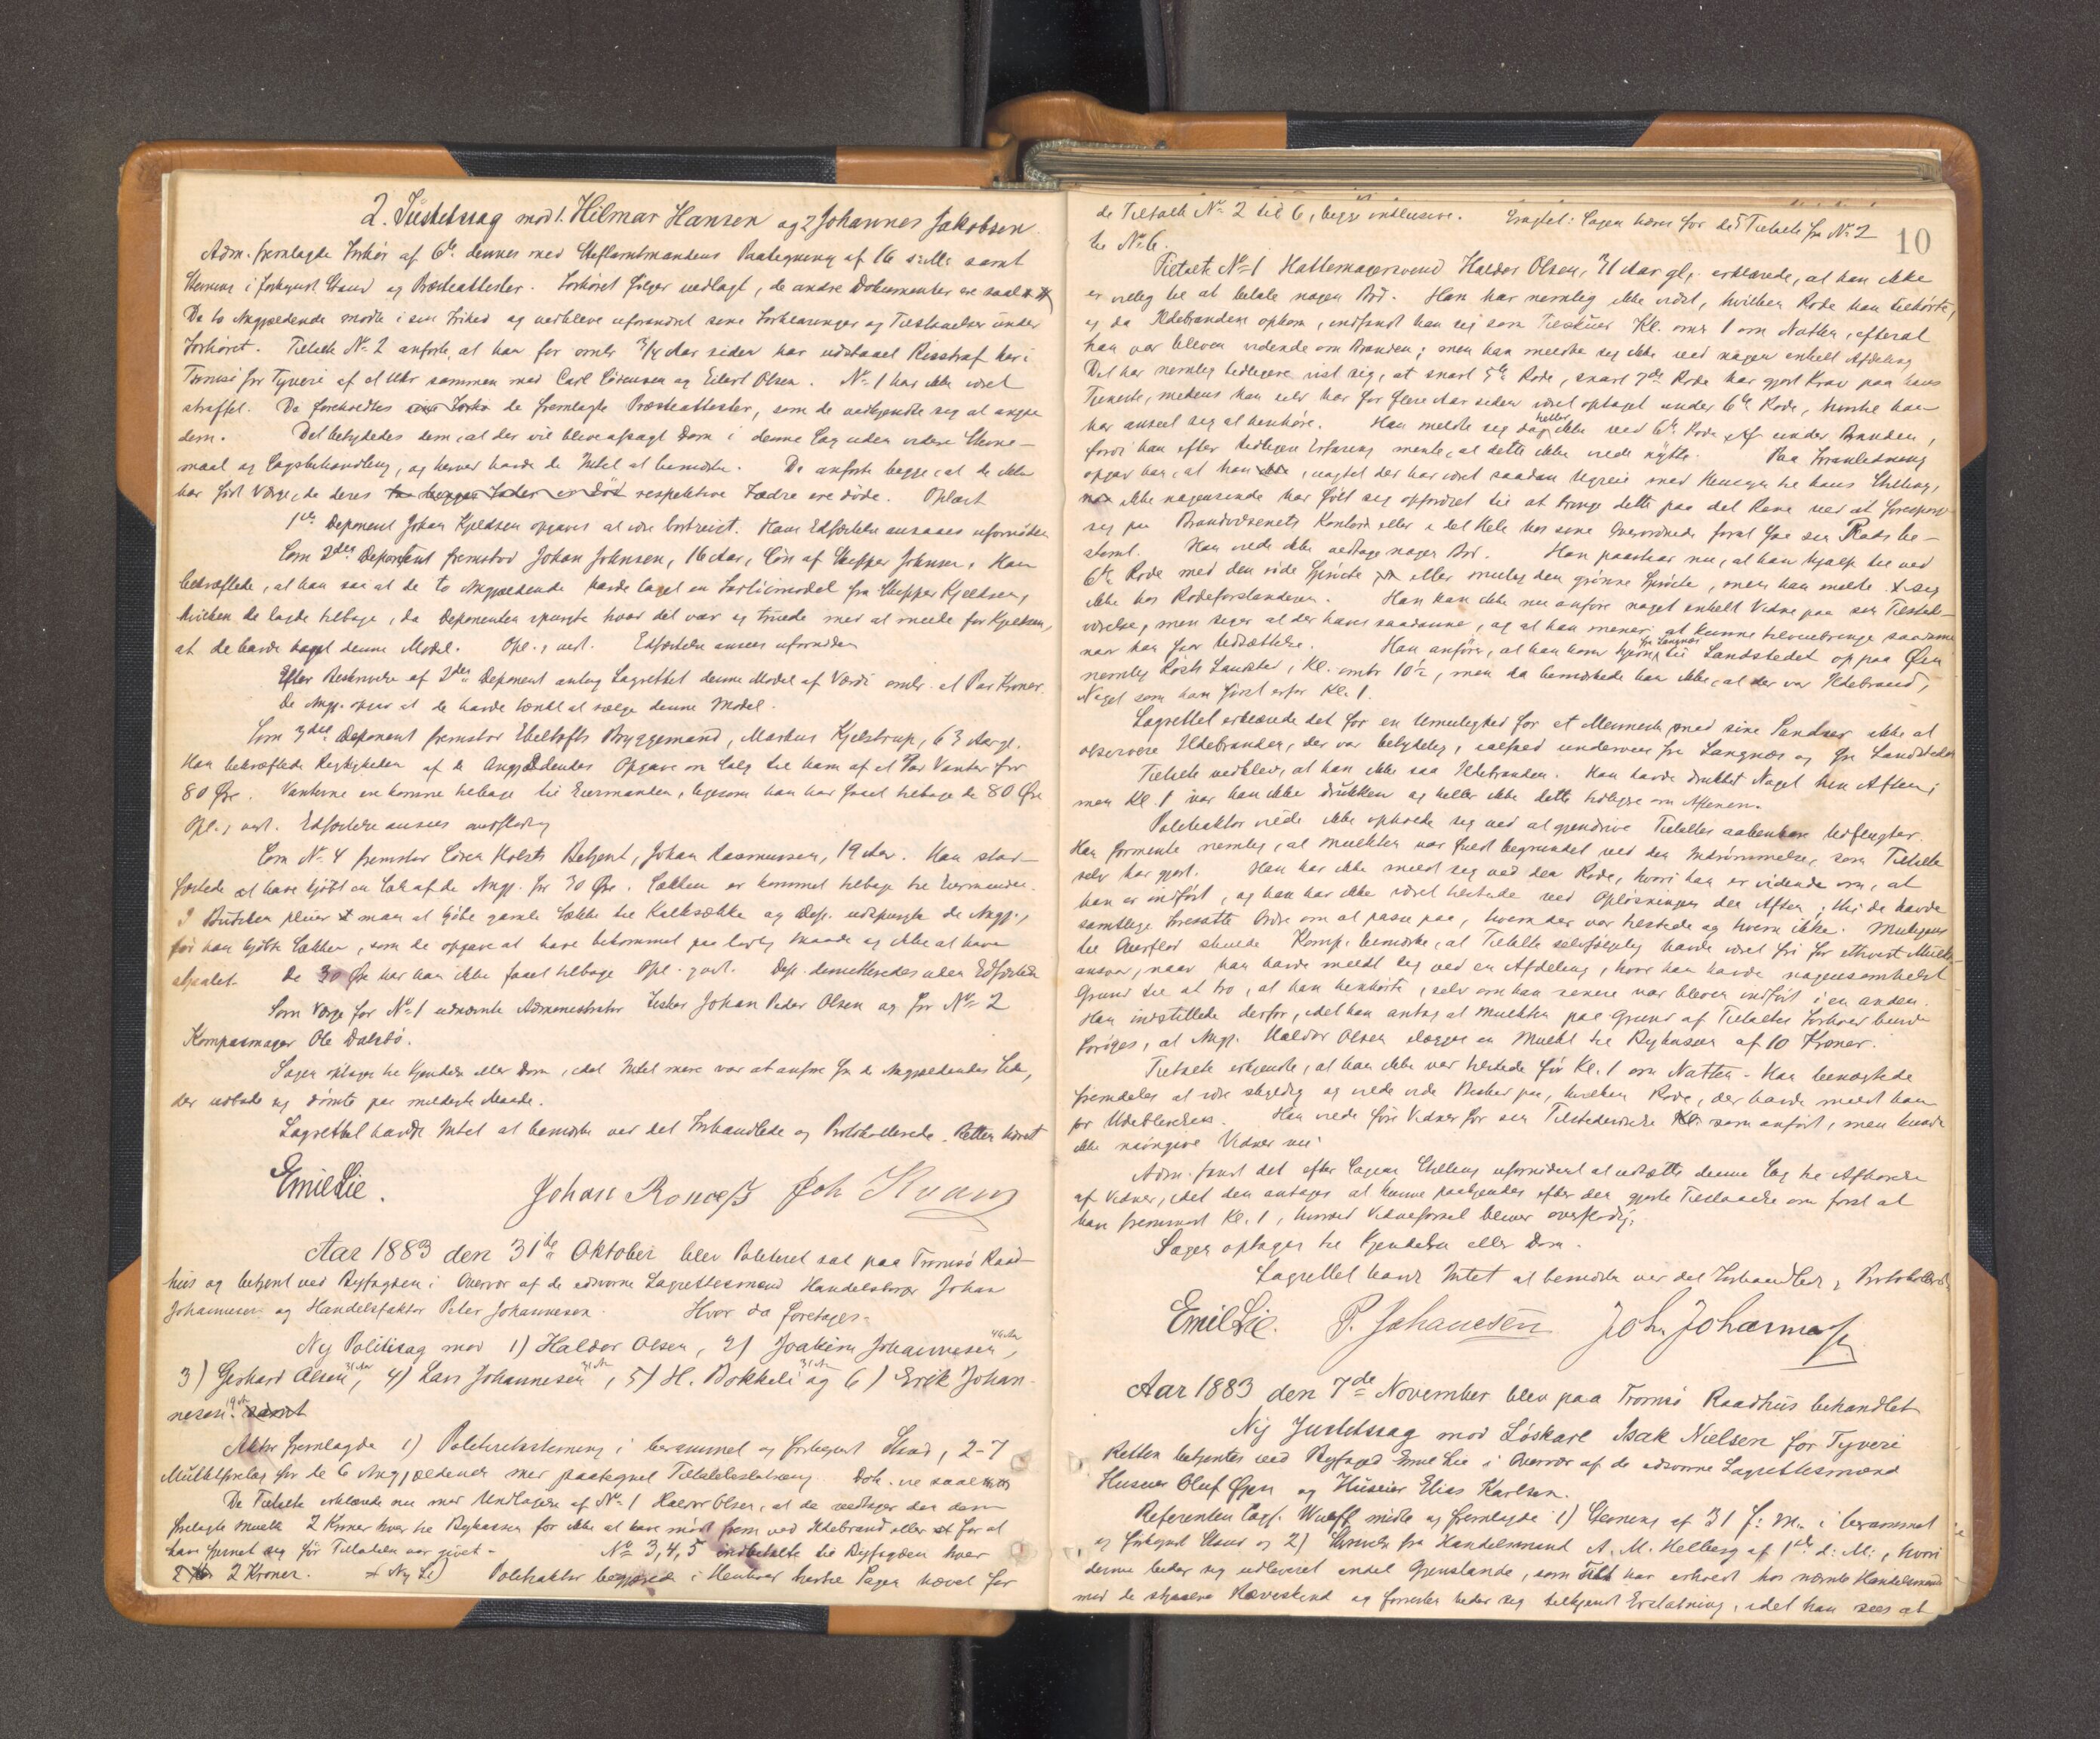 2. Justitssag mod 1. Hilmar Hansen og 2 Johannes Jakobsen.
Adm. fremlagde Forhør af 6te dennes med Stiftamtmandens Paategning af 16 s: M: samt
Stevning i forkyndt Stand og Præsteattester. Forhøret følger vedlagt, de andre Dokumenter ere saal.
De to Angjældende mødte i sin Frihed og vedbleve uforandret sine Forklaringer og Tilstaaelser under
Forhøret. Tiltalte No 2 anførte, at han for omtr 3/4 Aar siden har udstaaet Risstraf her i
Tromsø for Tyveri af et Uhr sammen med Carl Sörensen og Eilert Olsen. No 1 har ikke været
straffet. De foreholdtes de fremlagte Præsteattester, som de vedkjendte sig at angaa
dem. Det betydedes dem, at der vil blive afsagt Dom i denne Sag uden videre Stevne-
maal og Sagsbehandling, og herved havde de Intet at bemærke. De anførte begge, at de ikke
har født Værge, da deres respektive Fædre ere døde. Oplæst
1ste Deponent Johan Kjeldsen opgaves at være bortreist. Hans Edfæstelse ansaaes ufornöden
Som 2den Deponent fremstod Johan Johnsen, 16 Aar, Sön af Skipper Johnsen. Han
bekræftede, at han saa at de to Angjældende havde taget en Fartöimodel fra Skipper Kjeldsen,
hvilken de lagde tilbage, da Deponenten spurgte hvad det var og truede med at melde for Kjeldsen,
at de havde taget denne Model. Opl., vedt. Edfæstelse ansees ufornöden
Efter Beskrivelse af 2den Deponent antog Lagrettet denne Model af Værdi omtr. et Par Kroner.
De Angj. opgav at de havde tænkt at sælge denne Model.
Som 3die Deponent fremstod Ebeltofts Bryggemand, Markus Kjelstrup, 63 Aar gl.
Han bekræftede Rigtigheden af de Angjældendes Opgave om Salg til ham af et Par Vanter for
80 Øre. Vanterne ere komne tilbage til Eiermanden, ligesom han har faaet tilbage de 80 Øre
Opl., vedt. Edfæstelse ansees overflödig
Som No. 4 fremstod Sören Holsts Betjent, Johan Rasmussen, 19 Aar. Han stad-
fæstede at have kjöbt en Sæk af de Angj. for 30 Øre. Sækken er kommet tilbage til Eiermanden.
I Butiken pleier man at kjöbe gamle Sække til Kalksække og Dep. udspurgte de Angj.,
för han kjöbte Sækken, som de opgave at have bekommet paa lovlig Maade og ikke at have
stjaalet. De 30 Øre har han ikke faaet tilbage Opl. vedt. Dep. demitteredes uden Edfæstelse
Som Værge for No 1 udnævnte Administrator Fisker Johan Peder Olsen og for No 2
Kompasmager Ole Dalsbö.
Sagen optages til Kjendelse eller Dom, idet Intet mere var at anføre fra de Angjældendes Side,
der udbade sig dömte paa mildeste Maade.
Lagrettet havde Intet at bemærke ved det Forhandlede og Protokollerede. Retten hævet
Emil Lie. Johan Joh Kvam
Aar 1883 den 31te Oktober blev Politiret sat paa Tromsö Raad-
hus og betjent ved Byfogden i Overvær af de edsvorne Lagrettesmænd Handelsborger Johan
Johannesen og Handelsfaktor Peter Johannesen. Hvor da foretages
Ny Politisag mod 1) Haldor Olsen, 2) Joakim Johannesen, 46 Aar
3) Gerhard Olsen 31 Aar, 4) Lars Johannesen 31 Aar, 5) H. Bokkeli 31 Aar og 6) Erik Johan-
nesen 19 Aar.
Aktor fremlagde 1) Politiretsstevning i berammet og forkyndt Stand, 2-7
Mulktforelæg for de 6 Angjældende med paategnet Tiltalebeslutning. Dok. ere saal.
De Tiltalte erklærede nu med Undtagelse af No 1 Haldor Olsen, at de vedtager den dem
forelagte Mulkt 2 Kroner hver til Bykassen for ikke at have mödt frem ved Ildebrand eller for at
have fjernet sig för Tilladelse var givet. No 3, 4, 5 indbetalte til Byfogden hver
2 Kroner. Politiaktor begjærede i Henhold hertil Sagen hævet for
10
de Tiltalte No 2 til 6, begge inklusive. Eragtet: Sagen hæves for de Tiltalte fra No 2
til No 6.
Tiltalte No 1 Hattemagersvend Haldor Olsen, 31 Aar gl. erklærede, at han ikke
er villig til at betale nogen Bod. Han har nemlig ikke vidst, hvilken Rode han tilhörte,
og da Ildebranden opkom, indfandt han sig som Tilskuer Kl. omtr 1 om Natten, efterat
han var bleven vidende om Branden; men han meldte sig ikke ved nogen enkelt Afdeling
Det har nemlig tidligere vist sig, at snart 5te Rode, snart 7de Rode har gjort Krav paa hans
Tjeneste, medens han selv har for flere Aar siden været optaget under 6te Rode, hvortil han
har anseet sig at henhöre. Han meldte sig dog heller ikke ved 6te Rode under Branden,
fordi han efter tidligere Erfaring mente, at dette ikke vilde nytte. Paa Foranledning
opgav han, at han, uagtet der har været saadan Ugreie med Hensyn til hans Stilling,
ikke nogensinde har fölt sig opfordret til at bringe dette paa det Rene ved at foresporge
sig paa Brandvæsenets Kontor eller i det Hele hos sine Overordnede forat faa sin Rode be-
stemt. Han vilde ikke vedtage nogen Bod. Han paastaar nu, at han hjalp til ved
6te Rode med den röde Spröite eller mulig den grönne Spröite, men han meldte sig
ikke hos Rodeforstanderen. Han kan ikke nu anföre noget enkelt Vidne paa sin Tilstede-
værelse, men siger at der haves saadanne, og at han mener, at kunne tilveiebringe saadanne
naar han faar Udsættelse. Han anförer, at han kom hjem fra Langnæs til Landstedet oppaa Øen
nemlig Landsted, Kl. omtr 10½, men da bemærkede han ikke, at der var Ildebrand,
Noget som han först erfor Kl. 1.
Lagrettet erklærede det for en Umulighed for et Menneske med sine Sandser ikke at
observere Ildebranden, der var betydelig, ialfald underveis fra Langnæs og fra Landstedet
Tiltalte vedblev, at han ikke saa Ildebranden. Han havde drukket Noget hin Aften;
men Kl. 1 var han ikke drukken og heller ikke dette tidligere om Aftenen.
Politiaktor vilde ikke opholde sig ved at gjendrive Tiltaltes aabenbare Udflugter.
Han formente nemlig, at Mulkten var fuldt begrundet ved den Indrömmelse, som Tiltalte
selv har gjort. Han har ikke meldt sig ved den Rode, hvori han er vidende om, at
han er indfört, og han har ikke været tilstede ved Oplösningen den Aften, thi de havde
samtlige Foresatte Ordre om at passe paa, hvem der var tilstede og hvem ikke. Muligens
til Overflod skulde Komp. bemærke, at Tiltalte selvfölgelig havde været fri for ethvert Mulkt-
ansvar, naar han havde meldt sig ved en Afdeling, hvor han havde nogensomhelst
Grund til at tro, at han henhörte, selv om han senere var bleven indfört i en anden.
Han indstillede derfor, idet han antog at Mulkten paa Grund af Tiltaltes Forhold burde
foröges, at Angj. Haldor Olsen ilægges en Mulkt til Bykassen af 10 Kroner.
Tiltalte erkjendte, at han ikke var tilstede för Kl. 1 om Natten. Han benægtede
fremdeles at være skyldig og vilde vide Besked paa, hvilken Rode, der havde meldt ham
for Udeblivelsen. Han vilde före Vidner for sin Tilstedeværelse som anfört, men kunde
ikke navngive Vidner nu.
Adm. fandt det efter Sagens Stilling ufornödent at udsætte denne Sag til Afhörelse
af Vidner, idet den antages at kunne paakjendes efter den gjorte Tilstaaelse om först at
have fremmödt Kl. 1, hvorved Vidneförsel bliver overflödig.
Sagen optages til Kjendelse eller Dom.
Lagrettet havde Intet at bemærke ved det Forhandlede, Protokollerede
Emil Lie. P. Johanesen Joh. Johannesen
Aar 1883 den 7de November blev paa Tromsö Raadhus behandlet
Ny Justitssag mod Löskarl Isak Nielsen for Tyveri
Retten betjentes ved Byfoged Emil Lie i Overvær af de edsvorne Lagrettesmænd
Huseier Oluf og Huseier Elias Karlsen.
Referenten Sagf. Wulff mödte og fremlagde 1) Stevning af 31 f: M: i berammet
og forkyndt Stand og 2) Skrivelse fra Handelsmand A. M. Helberg af 1ste d: M:, hvori
denne beder sig udleveret endel Gjenstande, som Tilt har erholdt hos nævnte Handelsmand
med de stjaalne Ræveskind og forresten beder sig tilkjendt Erstatning, idet han sees at